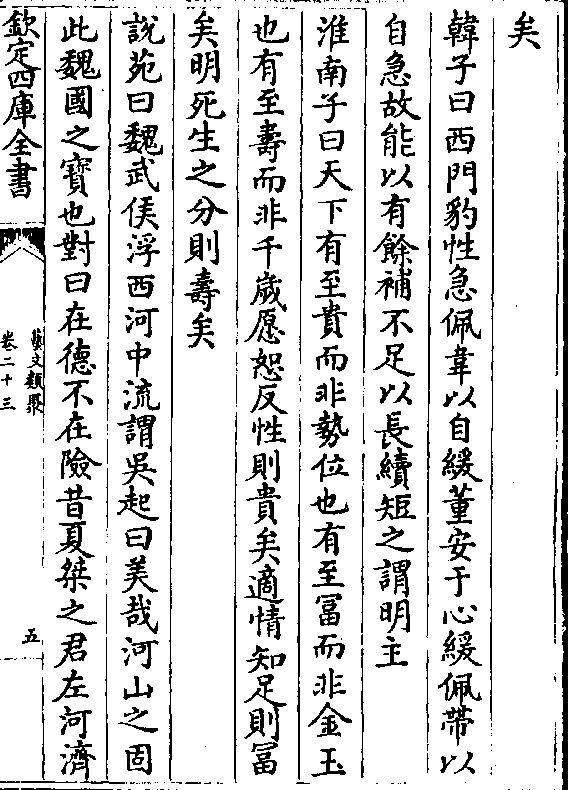 矣
韓子曰西門豹性急佩韋以自緩董安于心緩佩帶以
自急故能以有餘補不足以長續短之謂明主
淮南子曰天下有至貴而非勢位也有至冨而非金玉
也有至壽而非千歲愿恕反性則貴矣適情知足則冨
矣明死生之分則壽矣
說苑曰魏武侯浮西河中流謂吳起曰美哉河山之固
此魏國之寶也對曰在德不在險昔夏桀之君左河濟
欽定四庫全書
藝文類聚
卷二十三
五